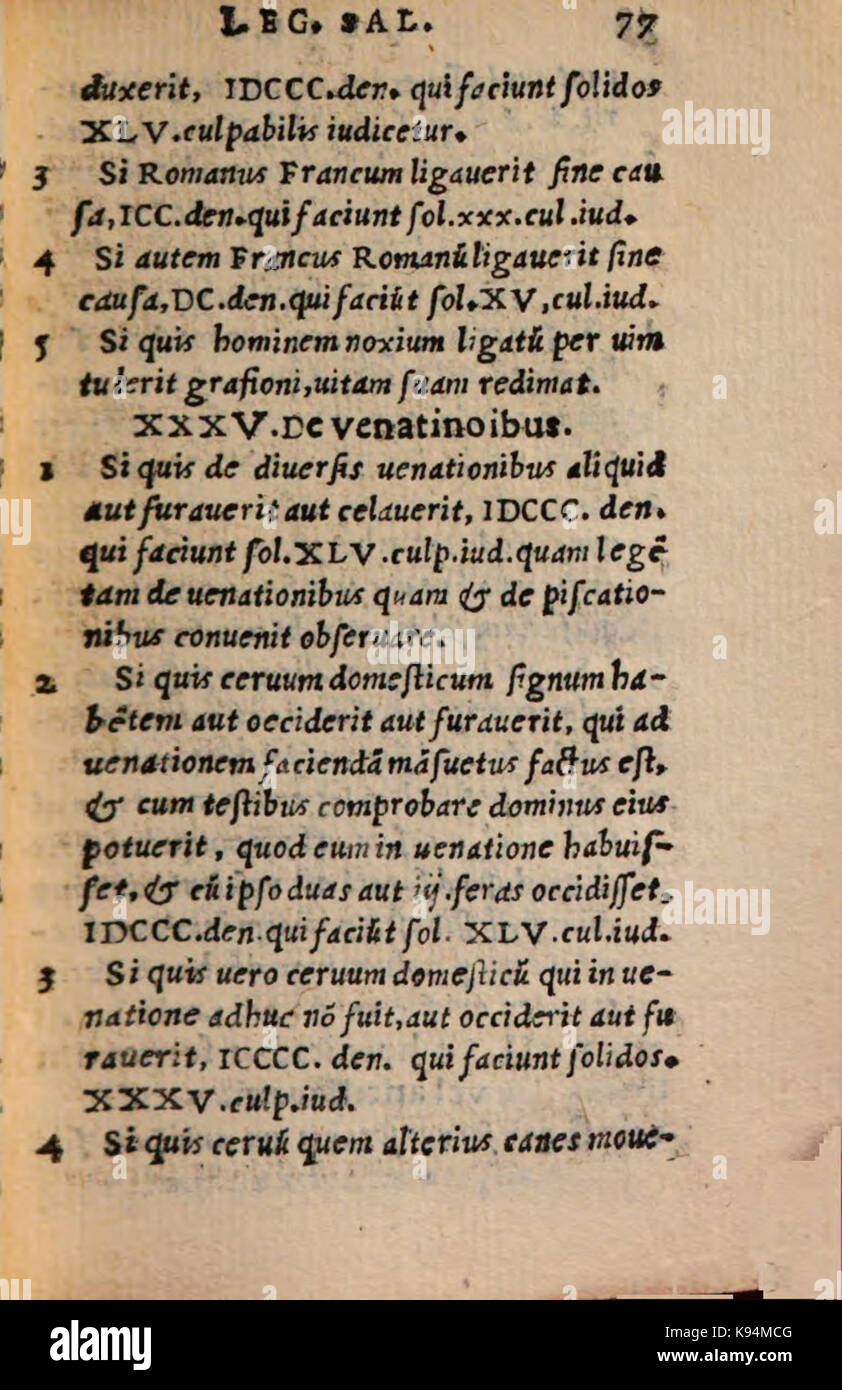 LEG. SAL. 77
duxerit, IDCCC.den. qui faciunt ſolidos
XLV.culpabilis iudicetur.
3 Si Romanus Francum ligauerit ſine cau
ſa,ICC.den.qui faciunt ſol.xxx.cul.iud.
4 Si autem Francus Romanū ligauerit ſine
cauſa,DC.den.qui faciūt ſol.XV,cul.iud.
5 Si quis hominem noxium ligatū per uim
tulerit grafioni,uitam ſuam redimat.
XXXV.De venatinoibus.
1 Si quis de diuerſis uenationibus aliquid
aut furauerit aut celauerit, IDCCC. den.
qui faciunt ſol.XLV.culp.iud.quam legē
tam de uenationibus quam & de piſcatio-
nibus conuenit obſeruare.
2 Si quis ceruum domeſticum ſignum ha-
bētem aut occiderit aut furauerit, qui ad
uenationem faciendā māſuetus factus eſt,
& cum teſtibus comprobare dominus eius
potuerit, quod eum in uenatione habuiſ-
ſet, & cū ipſo duas aut iij.feras occidiſſet,
IDCCC.den.qui faciūt ſol. XLV.cul.iud.
3 Si quis uero ceruum domeſticū qui in ue-
natione adhuc nō fuit,aut occiderit aut fu
rauerit, ICCCC. den. qui faciunt ſolidos.
XXXV.culp.iud.
4 Si quis ceruū quem alterius canes moue-
alamy stock photo
K94MCG
www.alamy.com